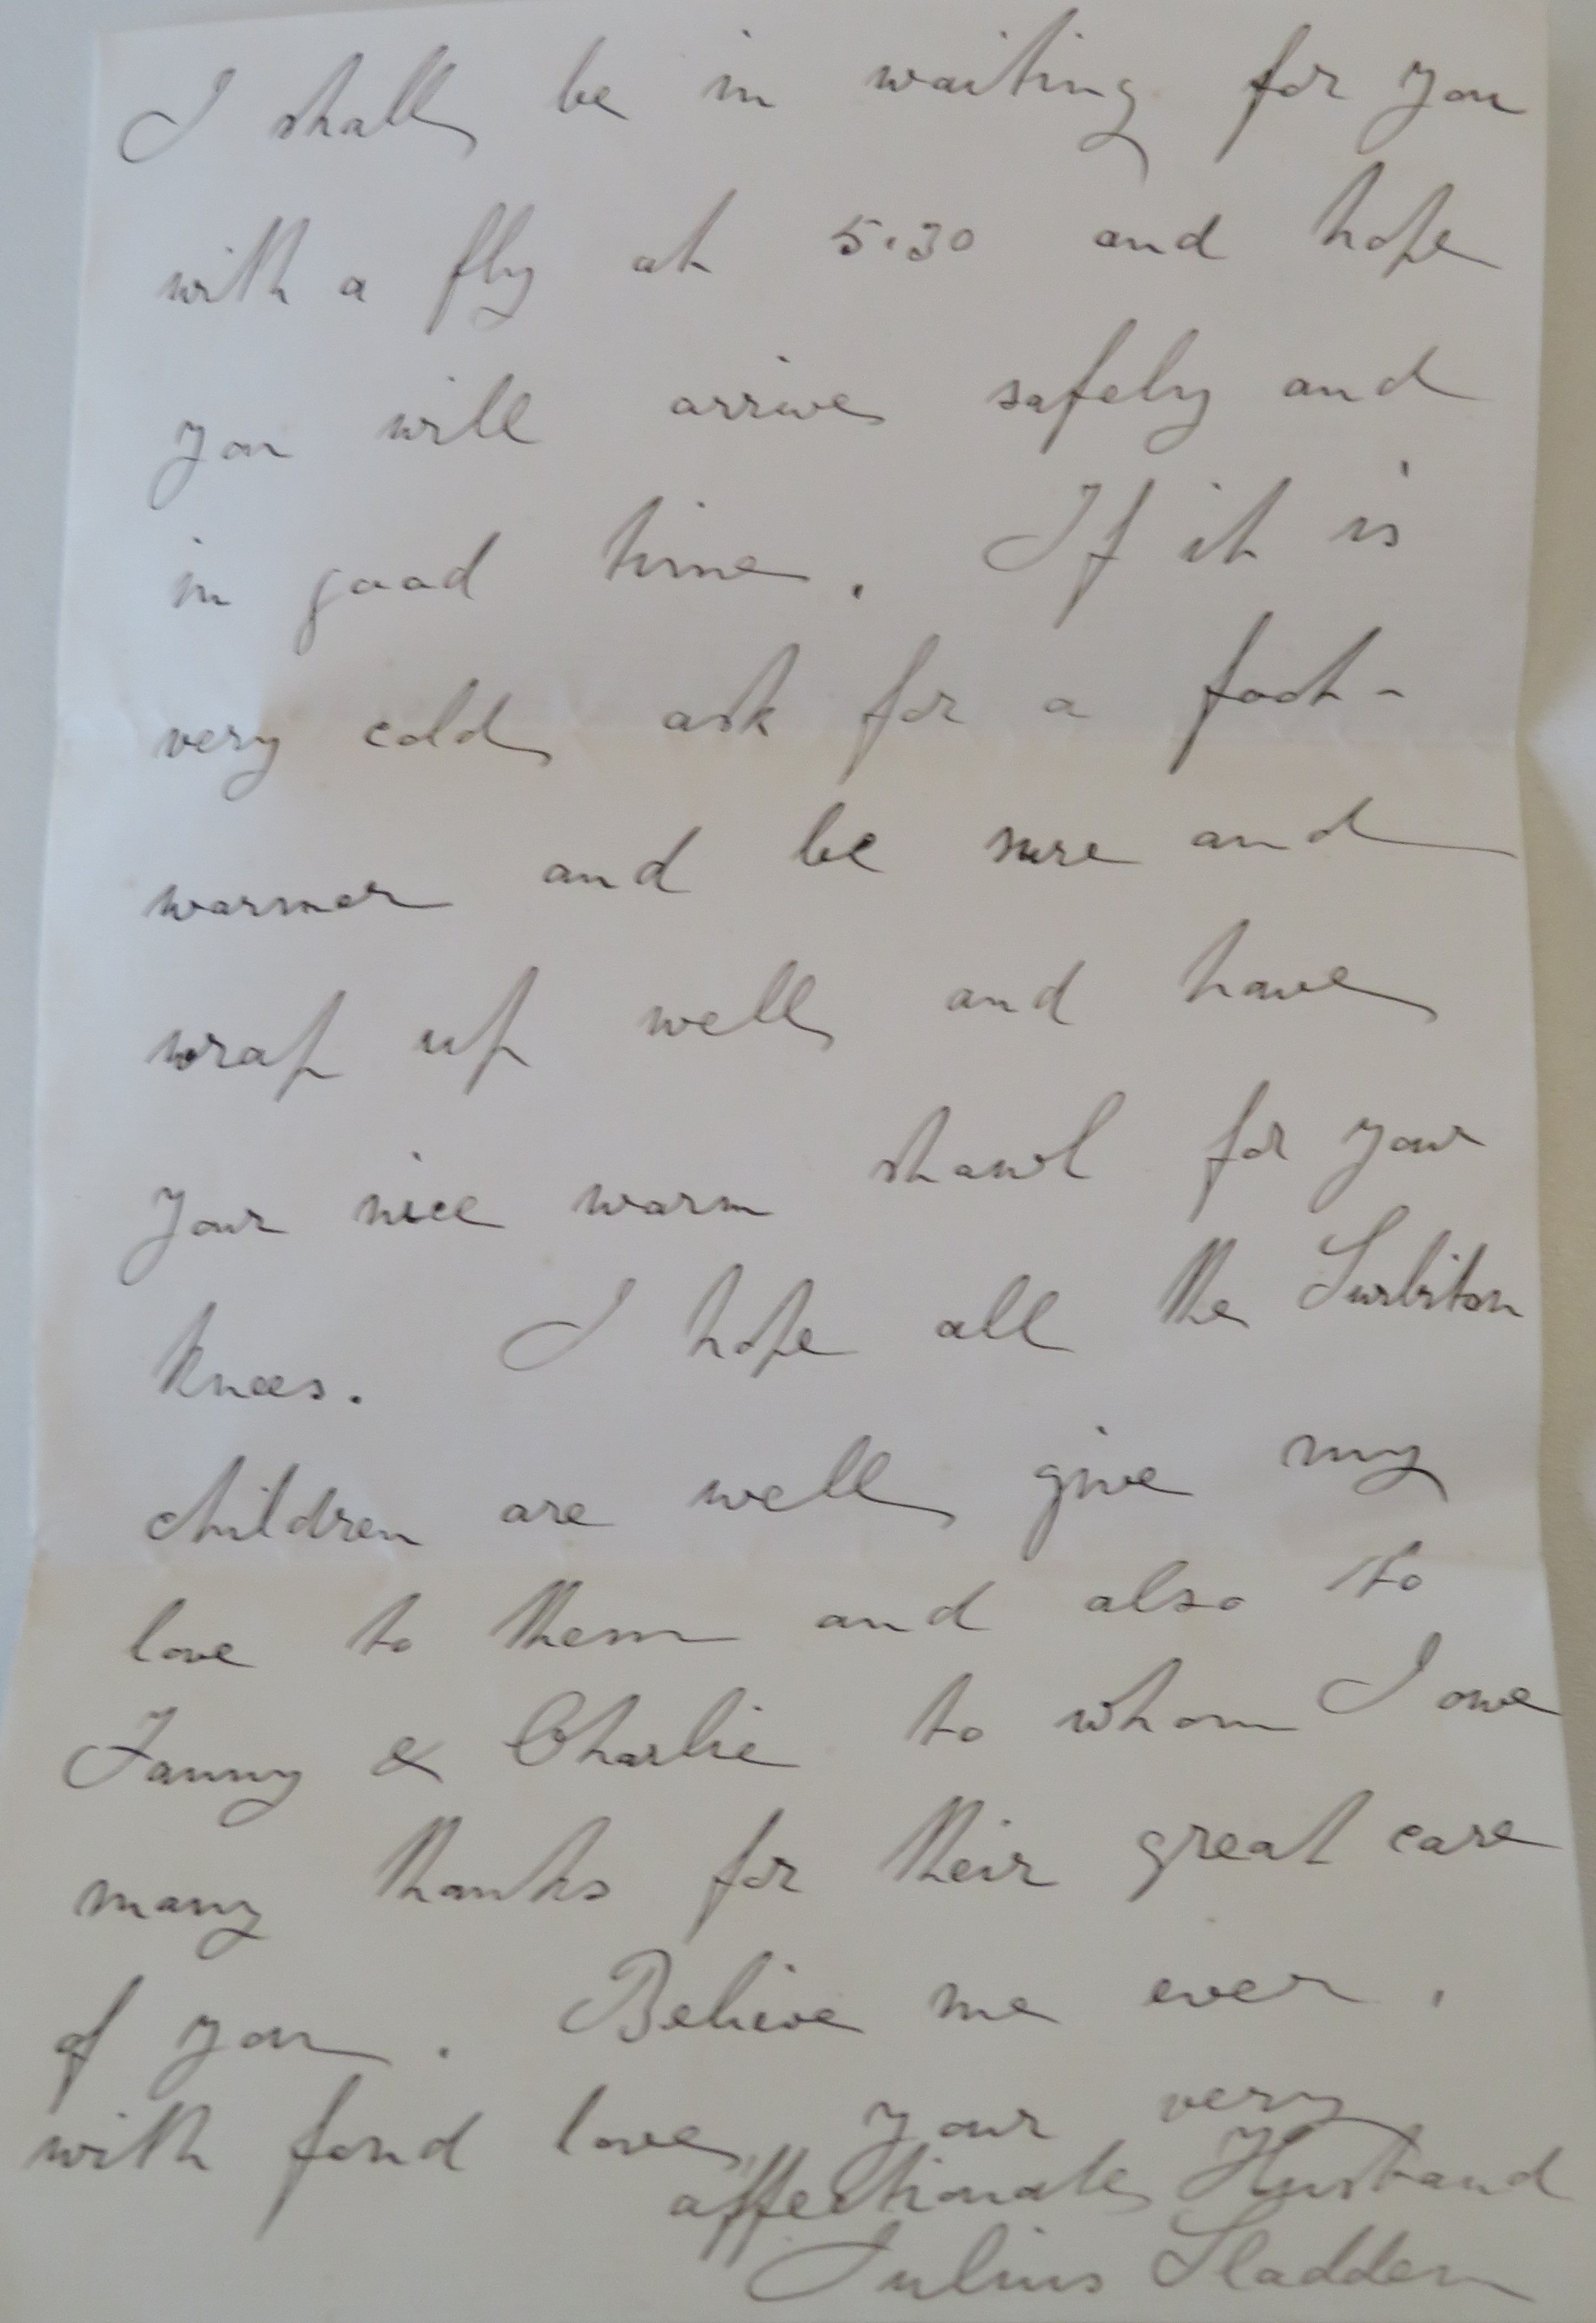 I shall be in waiting for you
with a fly at 5.30 and hope
you will arrive safely and
in good time. If it is
very cold ask for a foot-
warmer and be sure and
wrap up well and have
your nice warm shawl for your
knees. I hope all the Surbiton
children are well give my
love to them and also to
Fanny & Charlie to whom I owe
many thanks for their great care
of you. Believe me ever,
with fond love, your very
affectionate Husband
Julius Sladden